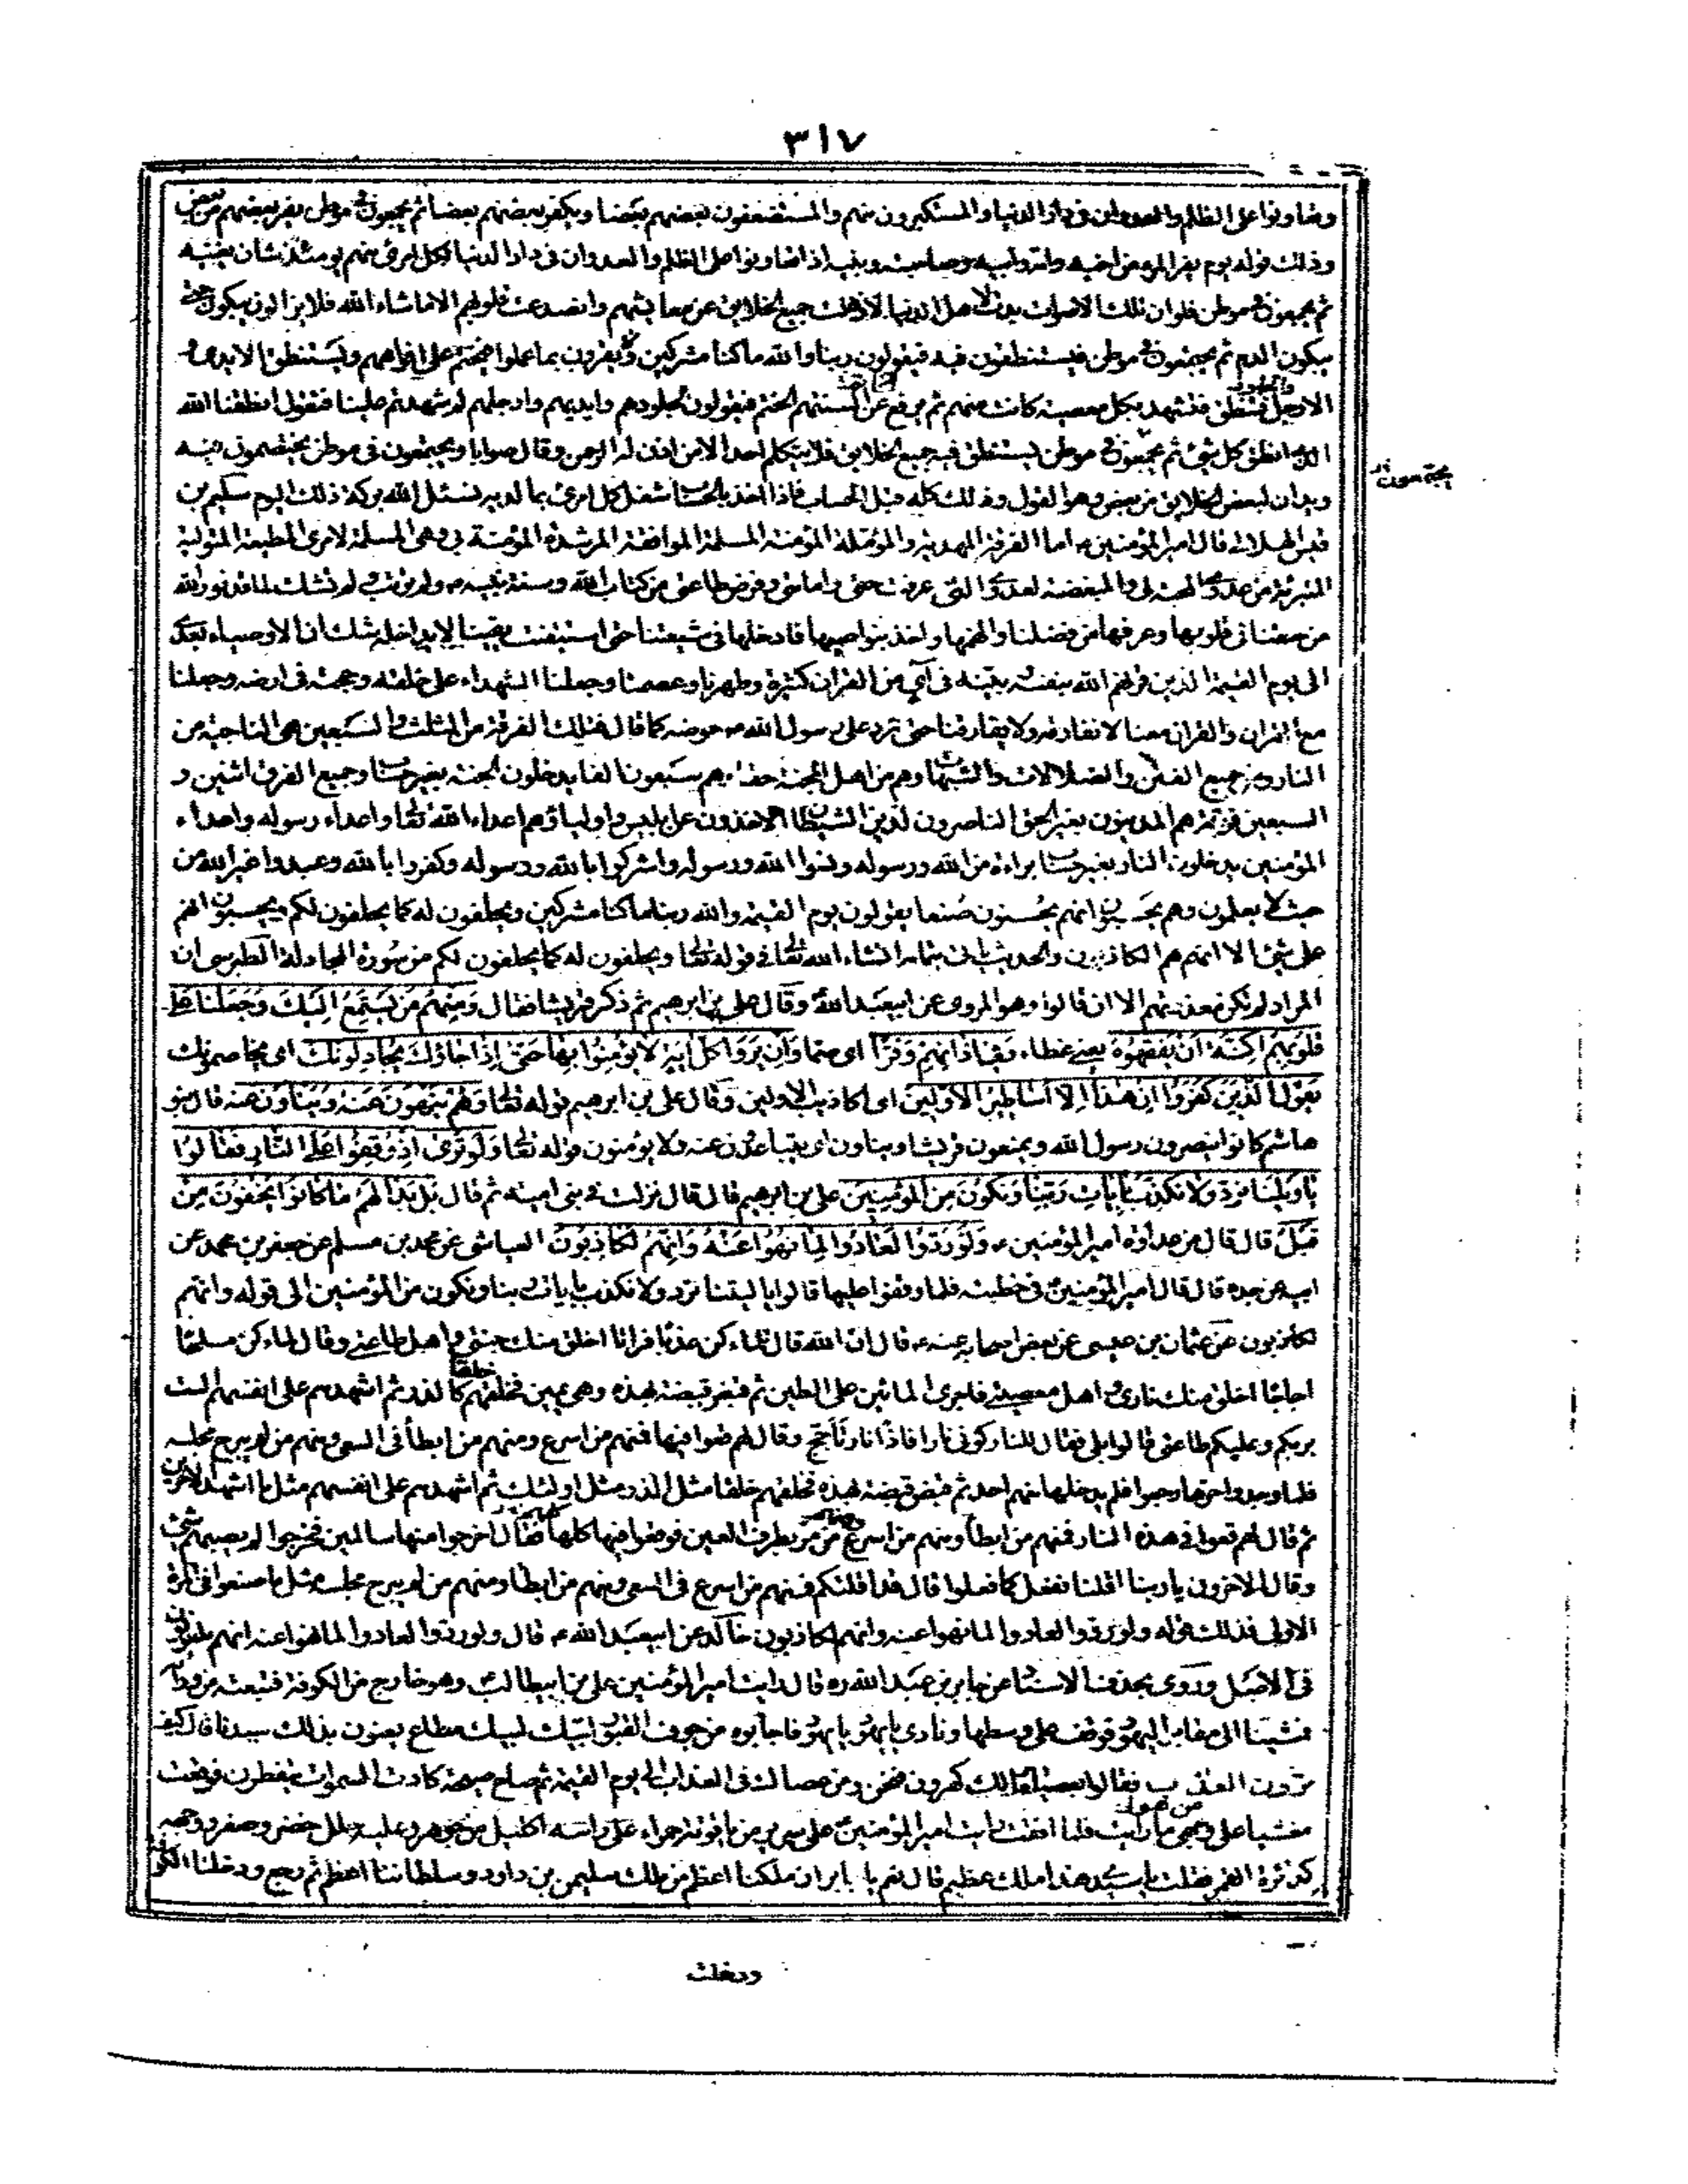 ٣١٧
وتعاونوا على الظلم والعدوان فى دار الدنيا والمستكبرون منهم والمستضعفون بعضهم بعضا ويكفر بعضهم بعضا ثم يجمعون فى موطن يفر بعضهم من بعض
وذلك قوله يوم يفر المرء من اخيه وامه وابيه وصاحبته وبنيه اذا تعاونوا على الظلم والعدوان فى دار الدنيا لكل امرئ منهم يومئذ شان يغنيه
ثم يجمعون فى موطن فلو ان تلك الاصوات بدت لاهل الدنيا لاذهلت جميع الخلايق عن معايشهم وانصدعت قلوبهم الا ما شاء الله فلا يزالون يبكون حتى
يبكون الدم ثم يجتمعون فى موطن فيستنطقون فيه فيقولون ربنا والله ما كنا مشركين ولا يقرون بما عملوا فيختم على افواههم ويستنطق الايدى و
الارجل والجلود فتنطق فتشهد بكل معصية كانت منهم ثم يرفع عن السنتهم الختم فيقولون لجلودهم وايديهم وارجلهم لم شهدتم علينا فتقول انطقنا الله
الذى انطق كل شئ ثم يجتمعون فى موطن يستنطق فيه جميع الخلايق فلا يتكلم احد الا من اذن له الرحمن وقال صوابا ويجتمعون فى موطن يختصمون فيه
يجتمعون
ويدان لبعض الخلايق من بعض وهو القول وذلك كله قبل الحساب فاذا اخذ بالحساب شغل كل امرئ بما لديه نسئل الله بركة ذلك اليوم سليم بن
قيس الهلالى قال امير المؤمنين ع اما الفرقة المهدية والمؤملة المؤمنة المسلمة الموافقة المرشدة المؤتمنة بى وهى المسلمة لامرى المطيعة المتولية
المتبرئة من عدوى المحبة لى والمبغضة لعدوى التى عرفت حقى وامامتى وفرض طاعتى من كتاب الله وسنة نبيه ص ولم ترتب ولم تشك لما قد نور الله
من حقنا فى قلوبها وعرفها من فضلنا والهمها واخذ بنواصيها فادخلها فى شيعتنا حتى استيقنت يقينا لا يداخله شك ان الاوصياء بعدى
الى يوم القيمة الذين قرنهم الله بنفسه ونبيه فى آى من القران كثيرة وطهرنا وعصمنا وجعلنا الشهداء على خلقه وحجته فى ارضه وجعلنا
مع القران والقران معنا لا نفارقه ولا يفارقنا حتى نرد على رسول الله ص حوضه كما قال فتلك الفرقة من الثلث والسبعين هى الناجية من
النار ومن جميع الفتن والضلالات والشبهات وهم من اهل الجنة حقا هم سبعون الفا يدخلون الجنة بغير حساب وجميع الفرق اثنين و
السبعين فرقة هم المدينون بغير الحق الناصرون لدين الشيطان الاخذون عن ابليس واوليائه هم اعداء الله تعالى واعداء رسوله واعداء
المؤمنين يدخلون النار بغير حساب براءة من الله ورسوله ونسوا الله ورسوله واشركوا بالله ورسوله وكفروا بالله وعبدوا غير الله من
حيث لا يعلمون وهم يحسبون انهم يحسنون صنعا يقولون يوم القيمة والله ربنا ما كنا مشركين ويحلفون له كما يحلفون لكم ويحسبون انهم
على شئ الا انهم هم الكاذبون والحديث ياتى بتمامه انشاء الله تعالى فى قوله تعالى ويحلفون له كما يحلفون لكم من سورة المجادلة الطبرسى ان
المراد لم تكن معذرتهم الا ان قالوا وهو المروى عن ابيعبد الله وقال على بن ابرهيم ثم ذكر قريشا فقال ومنهم من يستمع اليك وجعلنا على
قلوبهم اكنة ان يفقهوه يعنى غطاء وفى اذانهم وقرا اى صمما وان يروا كل اية لا يؤمنوا بها حتى اذا جاؤك يجادلونك اى يخاصمونك
يقول الذين كفروا ان هذا الا اساطير الاولين اى اكاذيب الاولين وقال على بن ابرهيم قوله تعالى وهم ينهون عنه وينأون عنه قال بنو
هاشم كانوا ينصرون رسول الله ويمنعون قريشا ويناون اى يتباعدون عنه ولا يؤمنون قوله تعالى ولو ترى اذ وقفوا على النار فقالوا
يا ليتنا نرد ولا نكذب بايات ربنا ونكون من المؤمنين على بن ابرهيم قال قال نزلت فى بنى امية ثم قال بل بدا لهم ما كانوا يخفون من
قبل قال قال من عداوة امير المؤمنين ع ولو ردوا لعادوا لما نهوا عنه وانهم لكاذبون العياشى عن محمد بن مسلم عن جعفر بن محمد عن
ابيه عن جده قال قال امير المؤمنين ع فى خطبته فلما وقفوا عليها قالوا يا ليتنا نرد ولا نكذب بايات ربنا ونكون من المؤمنين الى قوله وانهم
لكاذبون عن عثمان بن عيسى عن بعض اصحابه عنه ع قال ان الله قال للماء كن عذبا فراتا اخلق منك جنتى واهل طاعتى وقال للماء كن ملحا
اجاجا اخلق منك نارى واهل معصيتى فاجرى المائين على الطين ثم قبض قبضة بهذه وهى يمين فخلقهم خلقا كالذر ثم اشهدهم على انفسهم الست
بربكم وعليكم طاعتى قالوا بلى فقال للنار كونى نارا فاذا نار تاجج وقال لهم قعوا فيها فمنهم من اسرع ومنهم من ابطأ فى السعى ومنهم من لم يبرح مجلسه
فلما وجدوا حرها رجعوا فلم يدخلها منهم احد ثم قبض قبضة بهذه فخلقهم خلقا مثل الذر مثل اولئك ثم اشهدهم على انفسهم مثل ما اشهد الاخرين
ثم قال لهم قعوا فى هذه النار فمنهم من ابطأ ومنهم من اسرع ومنهم من مر بطرف العين فوقعوا فيها كلها فقال اخرجوا منها سالمين فخرجوا لم يصبهم شئ
وقال الاخرون يا ربنا اقلنا نفعل كما فعلوا قال قد اقلتكم فمنهم من اسرع فى السعى ومنهم من ابطا ومنهم من لم يبرح مجلسه مثل ما صنعوا فى المرة
الاولى فذلك قوله ولو ردوا لعادوا لما نهوا عنه وانهم لكاذبون خالد عن ابيعبد الله ع قال ولو ردوا لعادوا لما نهوا عنه انهم ملعونون
فى الاصل وروى بحذف الاسناد عن جابر بن عبد الله ره قال رايت امير المؤمنين على بن ابيطالب وهو خارج من الكوفة فتبعته من ورائه
فمشينا الى مقابر اليهود فوقف على وسطها ونادى يا يهود يا يهود فاجابوه من جوف القبور لبيك لبيك مطلاع يعنون بذلك سيدنا قال كيف
ترون العذاب فقالوا بعصياننا لك كهرون فنحن ومن عصاك فى العذاب الى يوم القيمة ثم صاح صيحة كادت السموات يتفطرن فوقعت
مغشيا على وجهى من هول ما رايت فلما افقت رايت امير المؤمنين ع على سرير من ياقوتة حمراء على راسه اكليل من الجوهر وعليه حلل خضر وصفر ووجهه
كدائرة القمر فقلت يا سيدى هذا ملك عظيم قال نعم يا جابر ان ملكنا اعظم من ملك سليمن بن داود وسلطاننا اعظم ثم رجع ودخلنا الكوفة
ودخلت